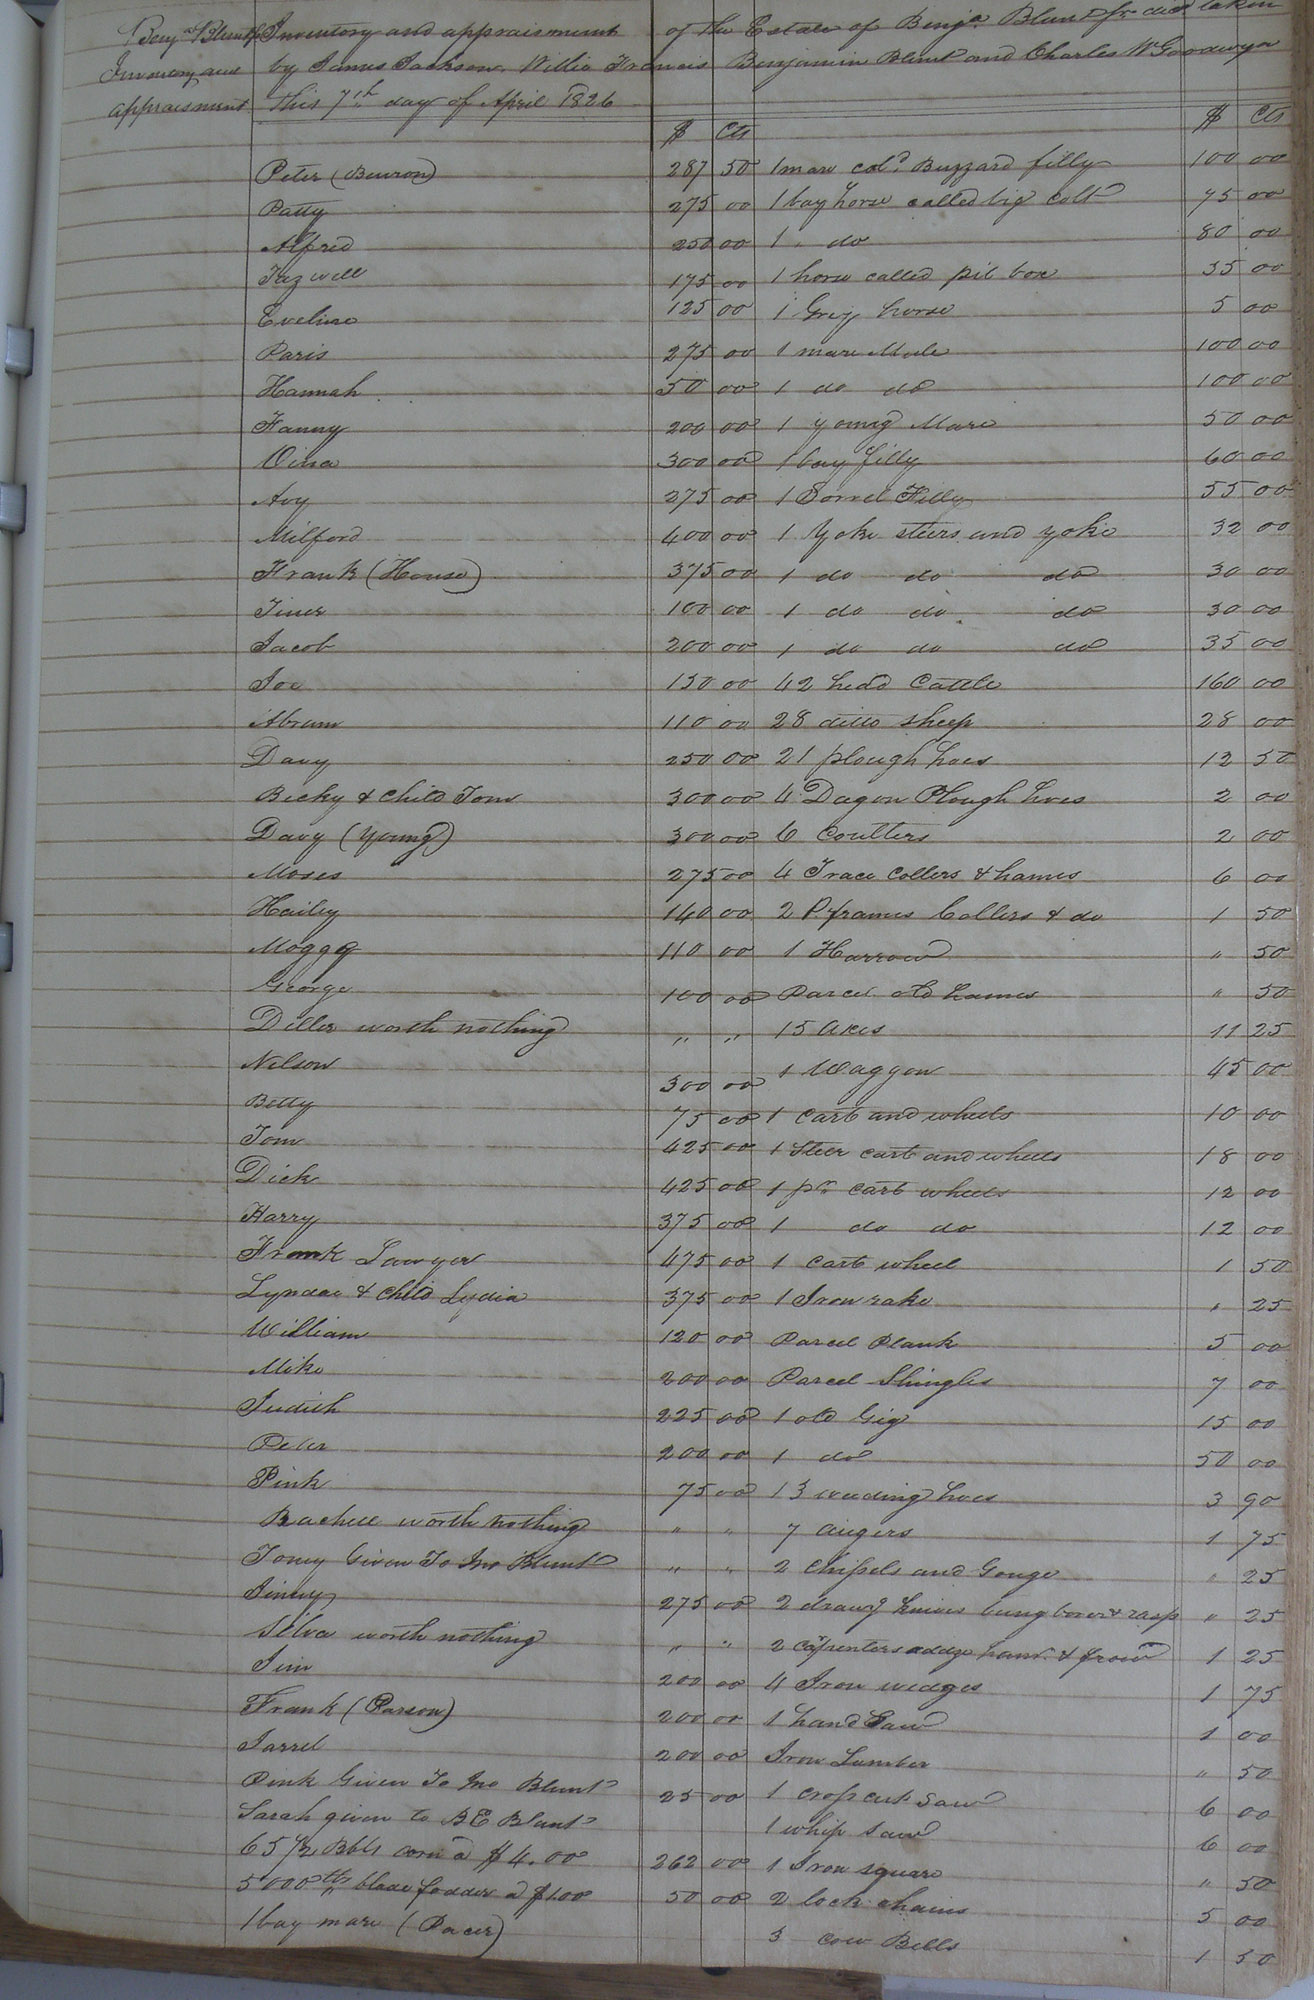 Benj.a Blunt Jr
Inventory and
appraisment
Inventory and appraisment of the Estate of Benj.a Blunt Jr decd taken
by James Jackson, Willie Francis Benjamin Blunt and Charles W Goodwyn
this 7th day of April 1826
$ Cts $ Cts
Peter 287 50 1 mare cold. Buzzard filly 100 00
Patty 275 00 1 bay horse called big colt 75 00
Alfred 250 00 1 " do 80 00
Tazwell 175 00 1 horse called pill box 35 00
Eveline 125 00 1 Grey horse 5 00
Paris 275 00 1 mare Mule 100 00
Hannah 50 00 1 do do 100 00
Fanny 200 00 1 young Mare 50 00
Vina 300 00 1 bay filly 60 00
Avy 275 00 1 Sorrel Filly 55 00
Milford 400 00 1 Yoke steers and yoke 32 00
Frank (House) 375 00 1 do do do 30 00
100 00 1 do do do 30 00
Jacob 200 00 1 do do do 35 00
Joe 150 00 42 head Cattle 160 00
Abram 110 00 28 ditto sheep 28 00
Davy 250 00 21 plough hoes 12 50
Becky & child Tom 300 00 4 Dagon Plough hoes 2 00
Davy (young) 300 00 6 Coulters 2 00
Moses 275 00 4 Trace Collers & hames 6 00
Hailey 140 00 2 P. frames Collers & do 1 50
Moggy 110 00 1 Harrow " 50
George 100 00 Parcel old hames " 50
Diller worth nothing " " 15 axes 11 25
Nelson 300 00 1 Waggon 45 00
Betty 75 00 1 cart and wheels 10 00
Tom 425 00 1 Steer cart and wheels 18 00
Dick 425 00 1 pr cart wheels 12 00
Harry 375 00 1 do do 12 00
Frank Sawyer 475 00 1 cart wheel 1 50
Lyndai & child Lydia 375 00 1 Iron rake " 25
William 120 00 Parcel Plank 5 00
Mike 200 00 Parcel Shingles 7 00
Judith 225 00 1 old Gig 15 00
Peter 200 00 1 do 50 00
Pink 75 00 13 weeding hoes 3 90
Rachell worth nothing " " 7 augers 1 75
Toney Given To Jno Blunt " " 2 chissels and Gouge " 25
Jincy 275 00 2 drawg knives bung borer & rasp " 25
Silva worth nothing " " 2 carpenters adze hamr. & frow 1 25
Jim 200 00 4 Iron wedges 1 75
Frank (Parson) 200 00 1 hand Saw 1 00
Jarrel 200 00 Iron Lumber " 50
Pink Given To Jno Blunt 25 00 1 cross cut Saw 6 00
Sarah given to B E Blunt 1 whip Saw 6 00
65 1/2 Bbls corn a $4.00 262 00 1 Iron square " 50
5000 lbs blade fodder a $100 50 00 2 lock chains 5 00
1 bay mare (Pacer) 3 cow Bells 1 50